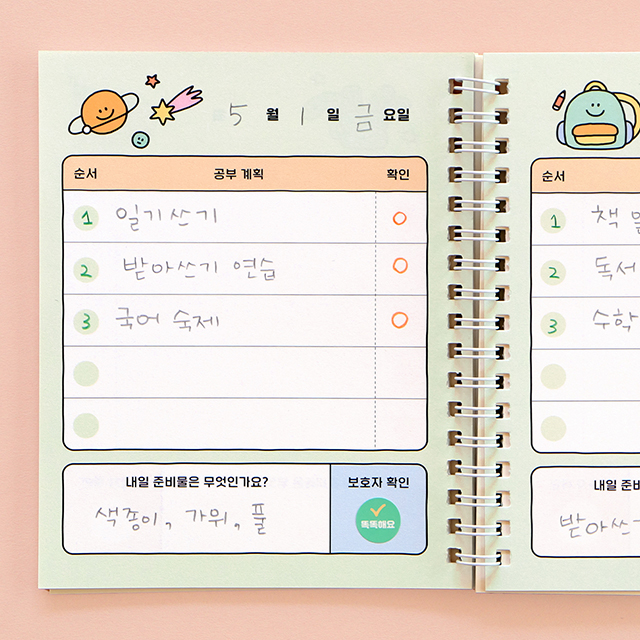 5 월 1 일 금 요일
순서 공부 계획 확인
1 일기쓰기
2 받아쓰기 연습
3 국어 숙제
내일 준비물은 무엇인가요? 보호자 확인
색종이, 가위, 풀
똑똑해요
순서
1 책
2 독서
3 수학
내일
받아쓰